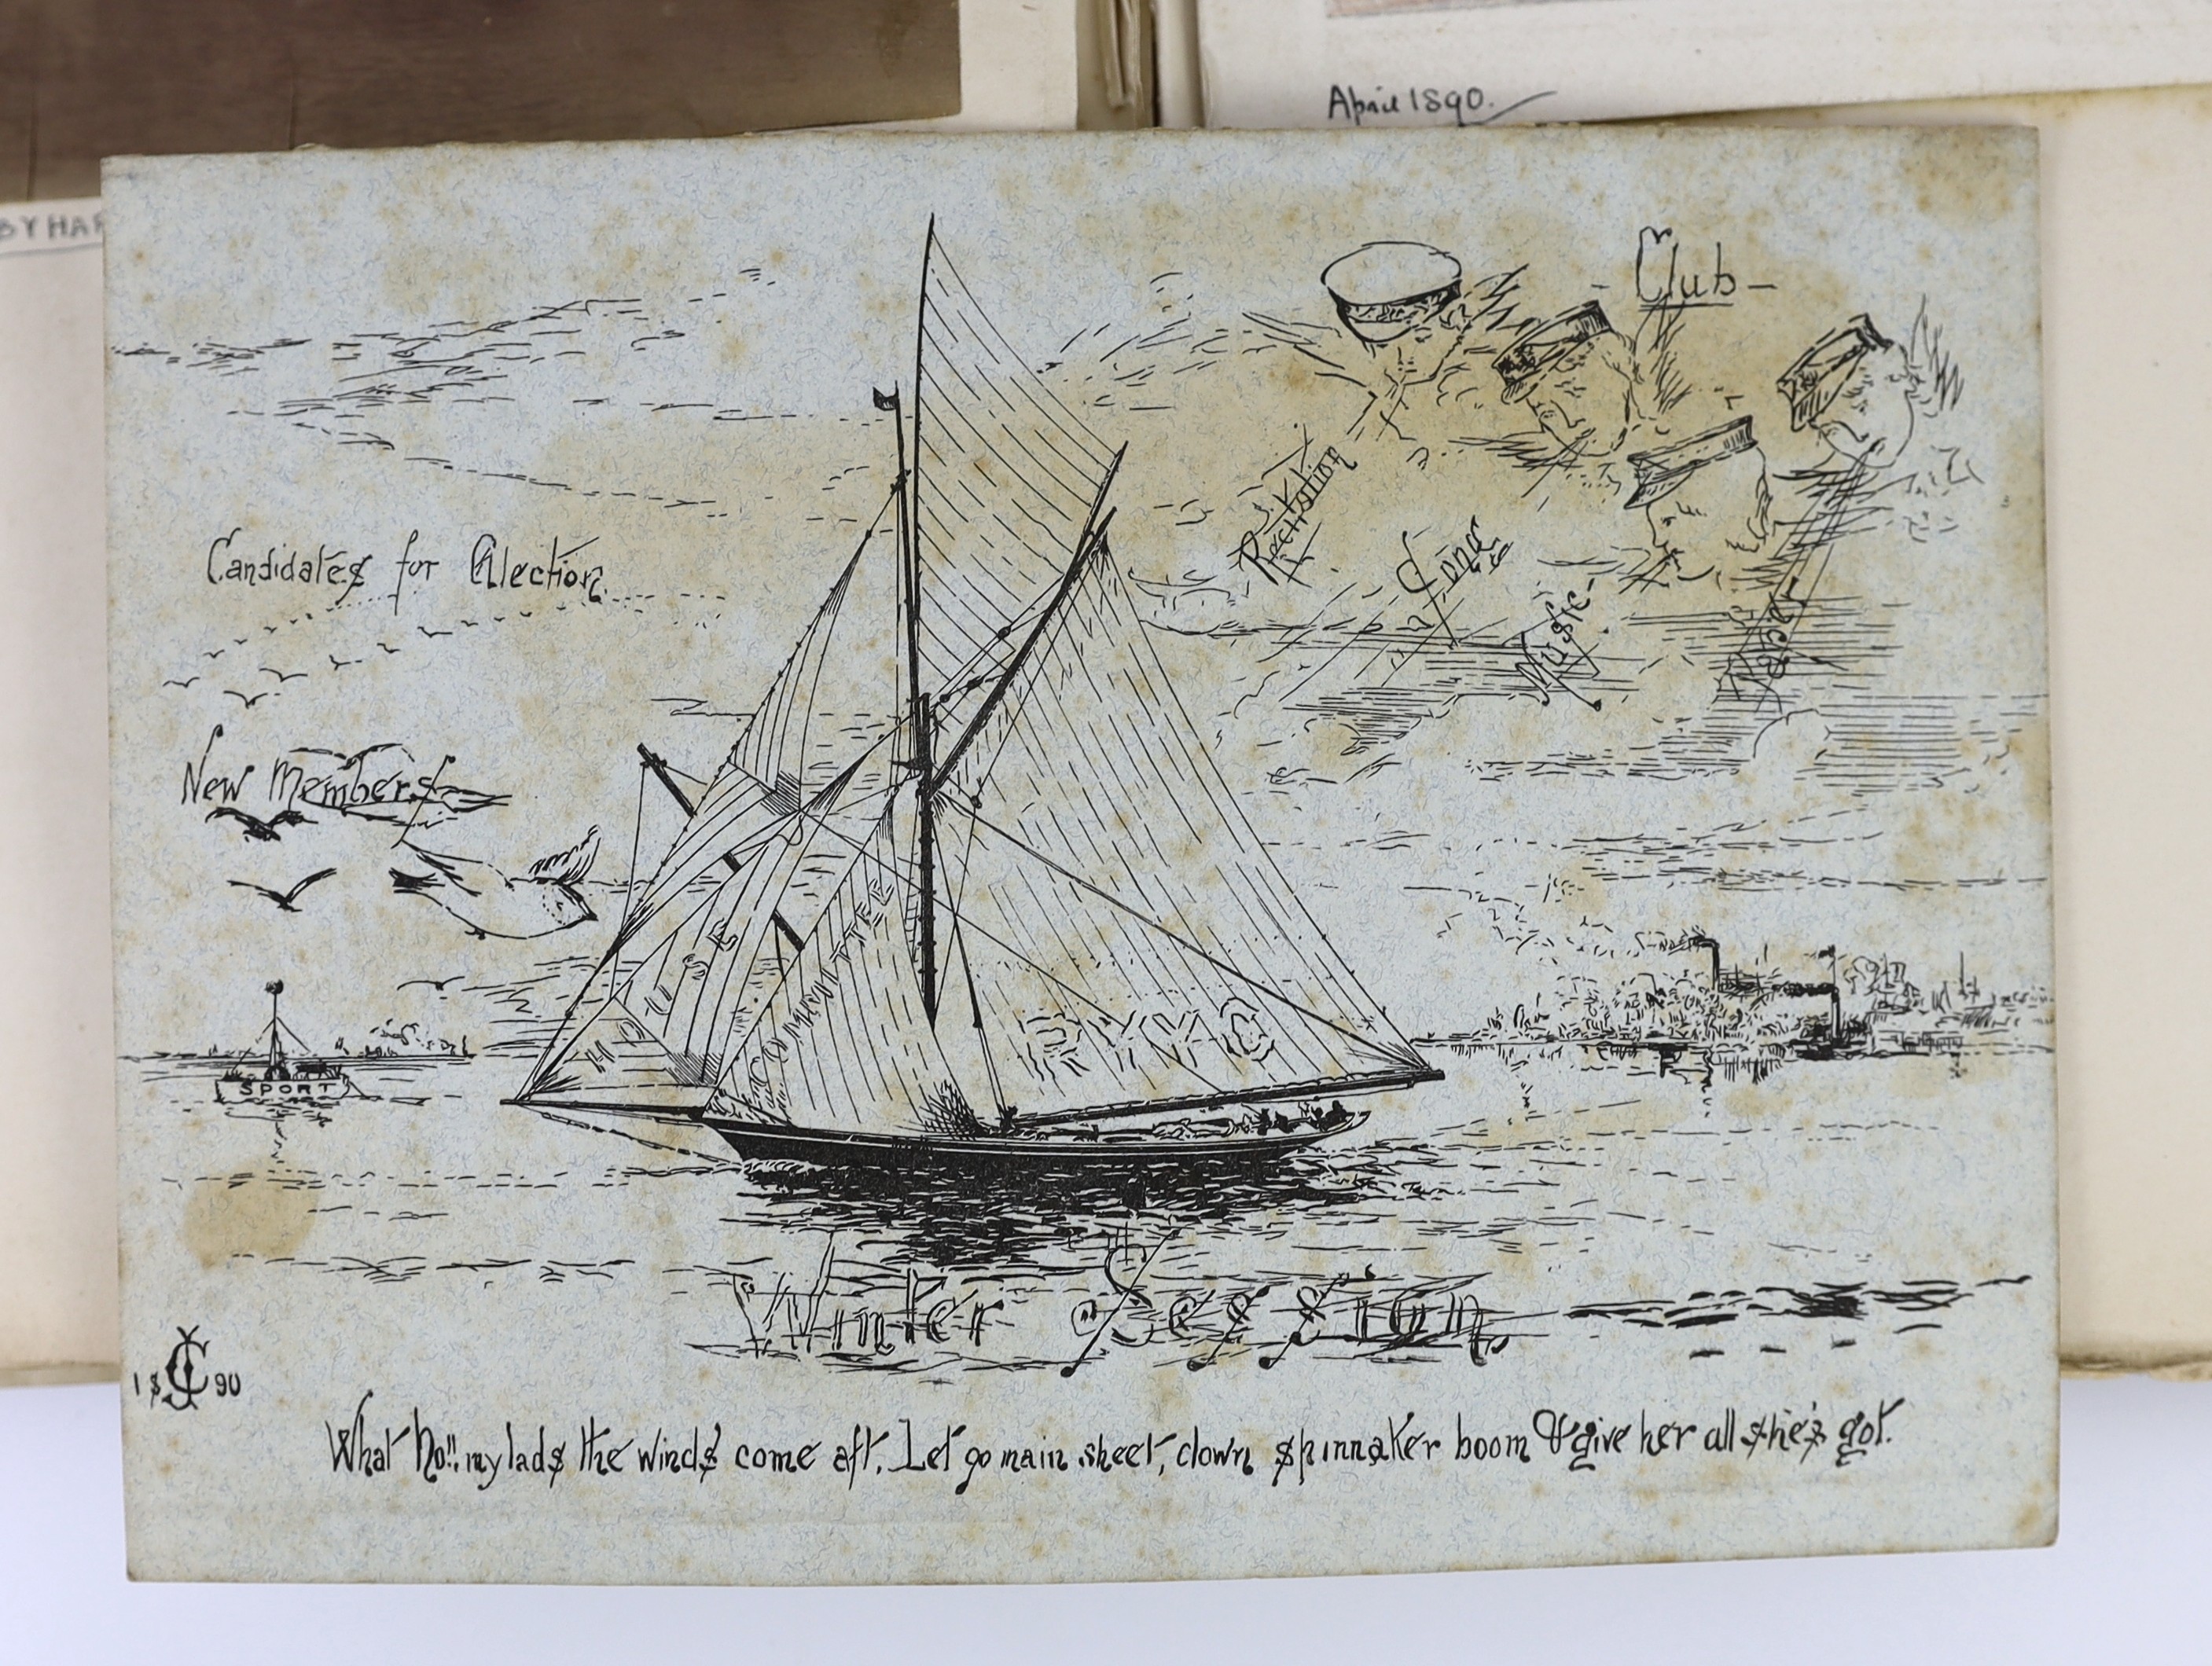 April 1890.
BY HAR
- Club -
Recitation
Song
Music
Candidates for Election
New Members
HOUSE
COMMITTEE
SPORT
Winter Session
1890
What ho!! my lads the winds' come aft. Let go main sheet, down spinnaker boom & give her all she's got.